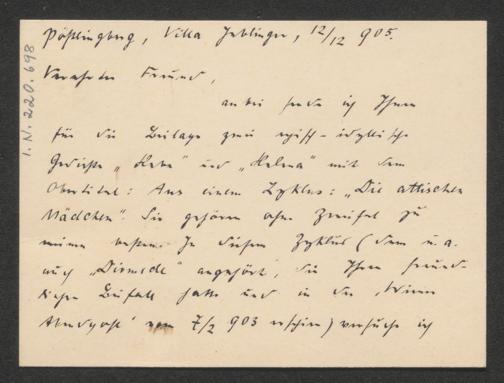 Pöstlingberg, Villa Jablinger, 12/12 905.
Verehrter Freund,
anbei sende ich Ihnen
für die Beilage zwei episch-idyllische
Gedichte „Hebe“ und „Helena“ mit dem
Obertitel: Aus einem Zyklus: „Die attischen
Mädchen“. Sie gehören ohne Zweifel zu
meinen besten. In diesem Zyklus (dem u. a.
auch „Diomede“ angehört, die Ihren freund-
lichen Beifall hatte und in der „Wiener
Abendpost“ vom 7/2 903 erschien) versuche ich
I.N. 220.698